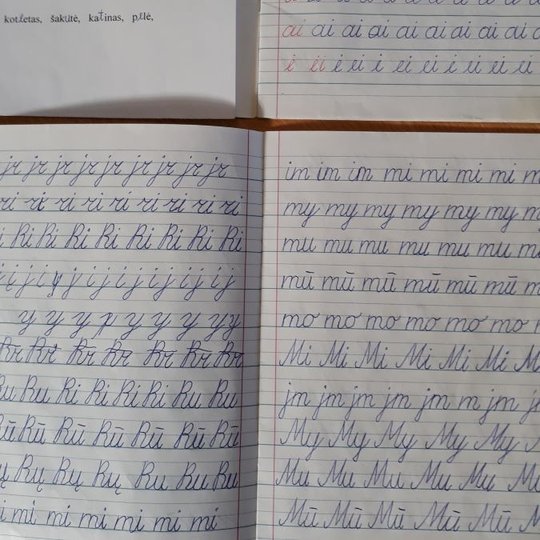 kotletas, šakutė, katinas, pelė,
ai ai ai ai ai ai ai ai ai ai
jr jr jr jr jr jr jr jr jr
ri ri ri ri ri ri ri ri ri
Ri Ri Ri Ri Ri Ri Ri Ri
i j i j y j i j i j i j i j
y y y y y y y y y
Rr Rr Rr Rr Rr Rr Rr
Ru Ru Ri Ri Ri Ri Ru Ru
Rū Rū Rū Rū Rū Rū Rū
Rų Rų Rų Ru Ru Ru
mi mi mi mi mi mi mi
im im im mi mi mi mi
my my my my my my
mu mu mu mu mu mu
mū mū mū mū mū mū
mo mo mo mo mo mo
Mi Mi Mi Mi Mi Mi
jm jm jm jm m jm
My My My My My
Mu Mu Mu Mu Mu
Mū Mū Mū Mū Mū